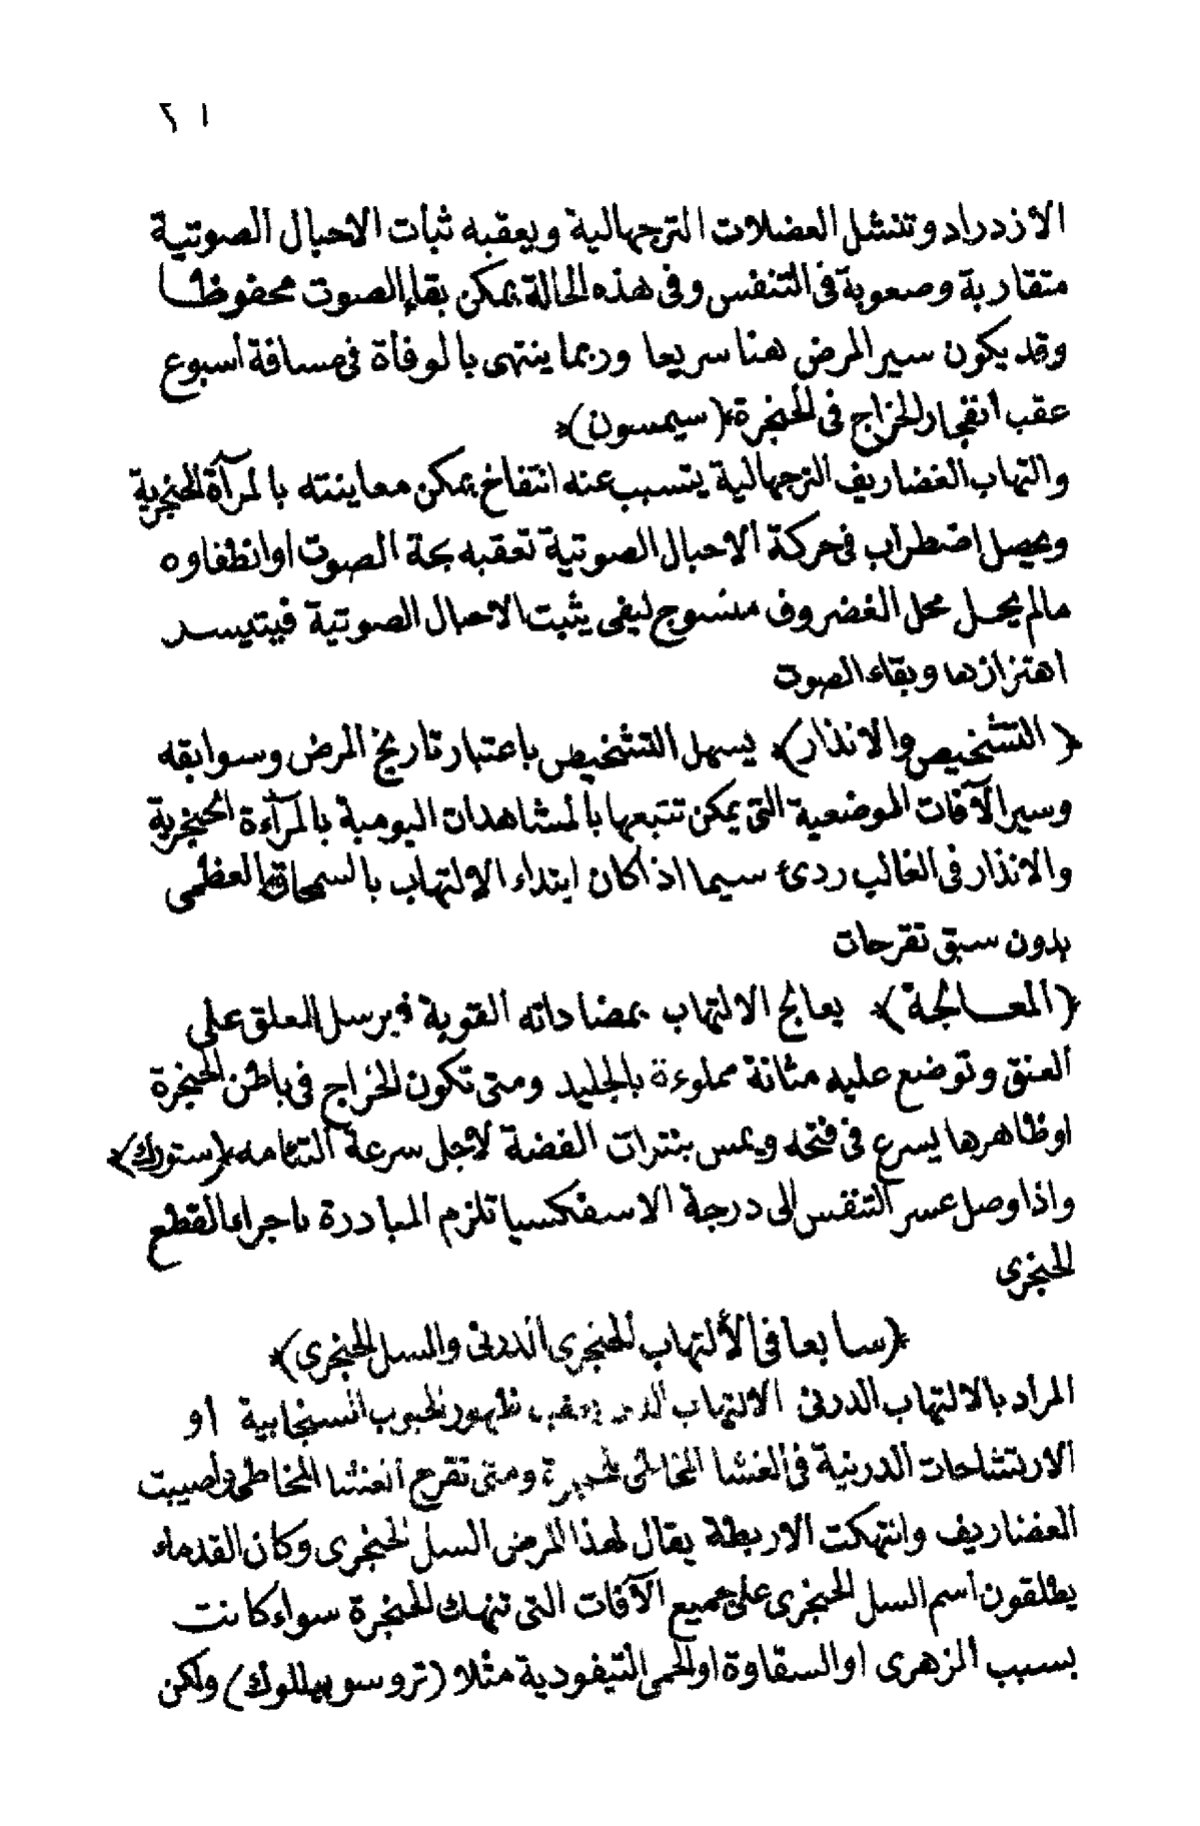 ٢١
الازدراد وتنشل العضلات الترجهالية ويعقبه ثبات الاحبال الصوتية
متقاربة وصعوبة فى التنفس وفى هذه الحالة يمكن بقاء الصوت محفوظا
وقد يكون سير المرض هنا سريعا وربما ينتهى بالوفاة فى مسافة أسبوع
عقب انفجار الخراج فى الحنجرة (سيمسون)
والتهاب الغضاريف الترجهالية يتسبب عنه انتفاخ يمكن معاينته بالمرآة الحنجرية
ويحصل اضطراب فى حركة الاحبال الصوتية تعقبه بحة الصوت او انطفاوه
مالم يحل محل الغضروف منسوج ليفى يثبت الاحبال الصوتية فيتيسر
اهتزازها وبقاء الصوت
(التشخيص والانذار) يسهل التشخيص باعتبار تاريخ المرض وسوابقه
وسير الآفات الموضعية التى يمكن تتبعها بالمشاهدات اليومية بالمرآءة الحنجرية
والانذار فى الغالب ردىء سيما اذا كان ابتداء الالتهاب بالسمحاق العظمى
بدون سبق تقرحات
(المعالجة) يعالج الالتهاب بمضاداته القوية فيرسل العلق على
العنق وتوضع عليه مثانة مملوءة بالجليد ومتى تكون الخراج فى باطن الحنجرة
او ظاهرها يسرع فى فتحه ويمس بنترات الفضة لاجل سرعة التئامه (ستورك)
واذا وصل عسر التنفس الى درجة الاسفكسيا تلزم المبادرة باجراء القطع
الحنجرى
(سابعا فى الألتهاب الحنجرى الدرنى والسل الحنجرى)
المراد بالالتهاب الدرنى الالتهاب الذى يعقب ظهور الحبوب السنجابية أو
الارتشاحات الدرنية فى الغشا المخاطى للحنجرة ومتى تقرح الغشا المخاطى واصيبت
الغضاريف وانتهكت الاربطة يقال لهذا المرض السل الحنجرى وكان القدماء
يطلقون اسم السل الحنجرى على جميع الآفات التى تنهك الحنجرة سواء كانت
بسبب الزهرى او السقاوة او الحمى التيفودية مثلا (تروسو وبيللوك) ولكن